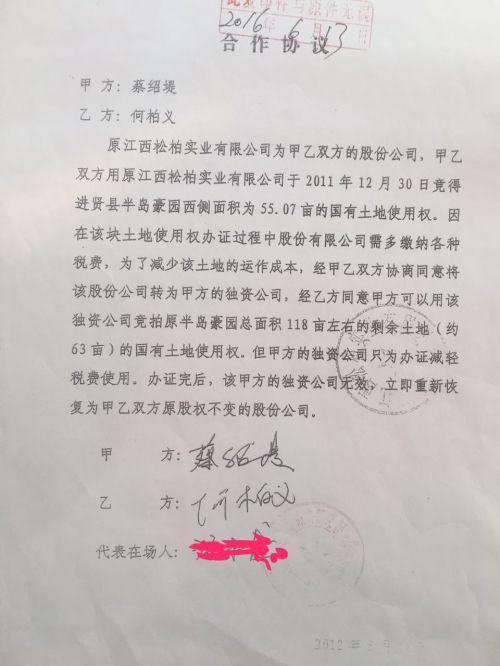 此复印件与原件无误
2016年6月13日
合作协议
甲方：蔡绍堤
乙方：何柏义
原江西松柏实业有限公司为甲乙双方的股份公司，甲乙
双方用原江西松柏实业有限公司于2011年12月30日竟得
进贤县半岛豪园西侧面积为55.07亩的国有土地使用权。因
在该块土地使用权办证过程中股份有限公司需多缴纳各种
税费，为了减少该土地的运作成本，经甲乙双方协商同意将
该股份公司转为甲方的独资公司，经乙方同意甲方可以用该
独资公司竞拍原半岛豪园总面积118亩左右的剩余土地（约
63亩）的国有土地使用权。但甲方的独资公司只为办证减轻
税费使用。办证完后，该甲方的独资公司无效，立即重新恢
复为甲乙双方原股权不变的股份公司。
甲方：蔡绍堤
乙方：何柏义
代表在场人：
2012年